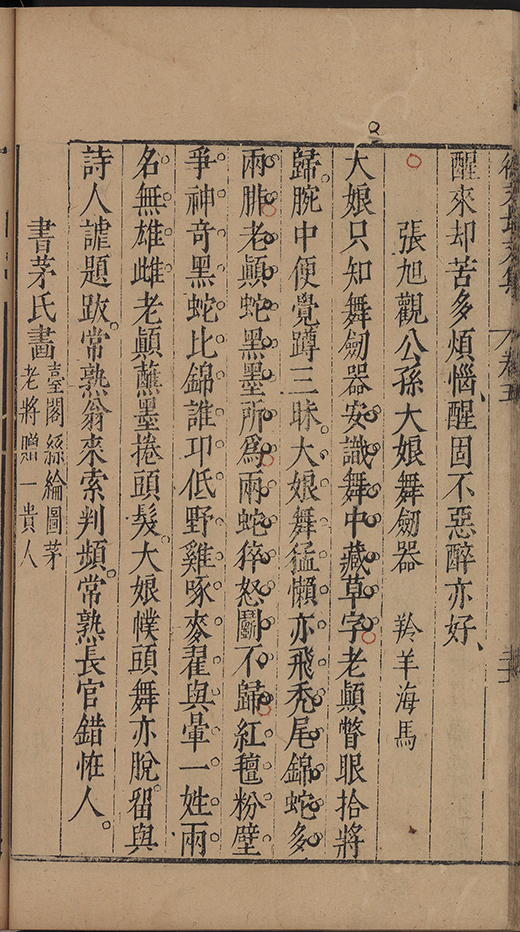 醒來却苦多煩惱、醒固不惡醉亦好、
張旭觀公孫大娘舞劒器　羚羊海馬
大娘只知舞劒器安識舞中藏草字老顛瞥眼拾將
歸腕中便覺蹲三昧。大娘舞猛懶亦飛禿尾錦蛇多
兩腓老顛蛇黑墨所爲兩蛇猝怒鬬不歸紅氊粉壁
爭神奇黑蛇比錦誰卭低野雞啄麥翟與翬一姓兩
名無雄雌老顛蘸墨捲頭髮。大娘幞頭舞亦脫。留與
詩人謔題跋。常熟翁來索判頻。常熟長官錯恠人。
書茅氏畫
臺閣絲綸圖茅
老將贈一貴人